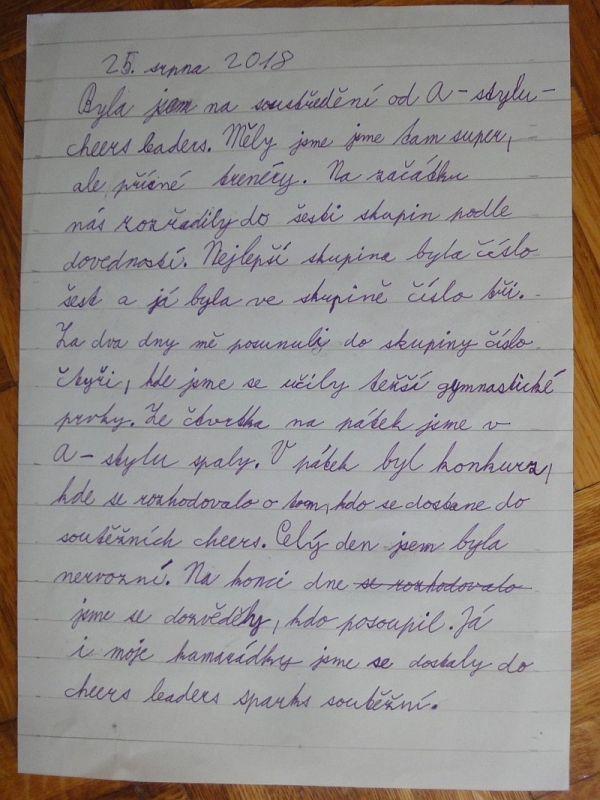 25. srpna 2018
Byla jsem na soustředění od A-stylu-
cheers leaders. Měly jsme jsme tam super,
ale přísné trenéry. Na začátku
nás rozřadily do šesti skupin podle
dovedností. Nejlepší skupina byla číslo
šest a já byla ve skupině číslo tři.
Za dva dny mě posunuli do skupiny číslo
čtyři, kde jsme se učily težší gymnastické
prvky. Ze čtvrtka na pátek jsme v
A-stylu spaly. V pátek byl konkurz,
kde se rozhodovalo o tom, kdo se dostane do
soutěžních cheers. Celý den jsem byla
nervozní. Na konci dne se rozhodovalo
jsme se dozvěděly, kdo posoupil. Já
i moje kamarádky jsme se dostaly do
cheers leaders sparks soutěžní.